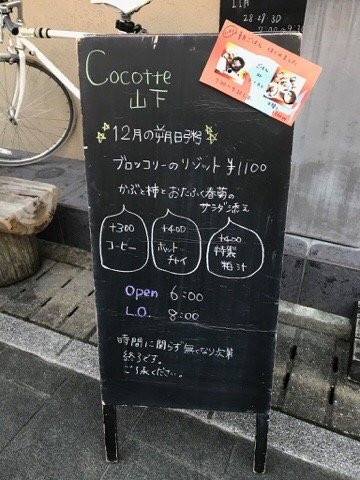 11月
28(月)30
朝ごはん はじめました
7:00~9:30
Cocotte
山下
☆12月の朔日粥☆
ブロッコリーのリゾット ¥1100
かぶと柿とおたふく春菊の
サラダ添え
+300
コーヒー
+400
ホット
チャイ
+400
特製
粕汁
Open 6:00
L.O. 8:00
時間に関らず無くなり次第
終了です。
ご了承ください。